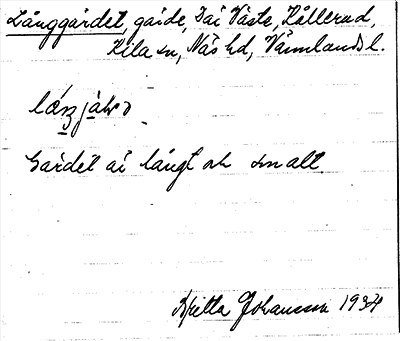 Långgärdet, gärde, Där Väste, Hållerud,
Kila sn, Näs hd, Värmlands l.
Gärdet är långt och smalt
Britta Johansson 1934